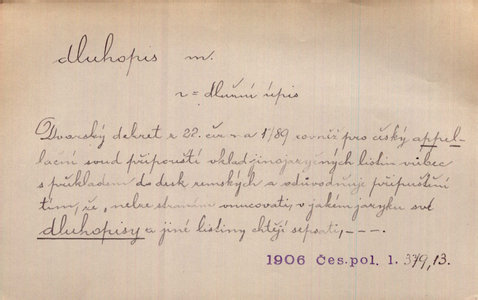 dluhopis m.
v = dlužní úpis
Dvorský dekret z 22. června 1789 rovněž pro český appel-
lační soud připouští vklad jinojazyčných listin vůbec
s překladem do desk zemských a odůvodňuje připuštění
tím, že „nelze stranám vnucovati, v jakém jazyku své
dluhopisy a jiné listiny chtějí sepsati, – – –.
1906 Čes. pol. 1. 379, 13.